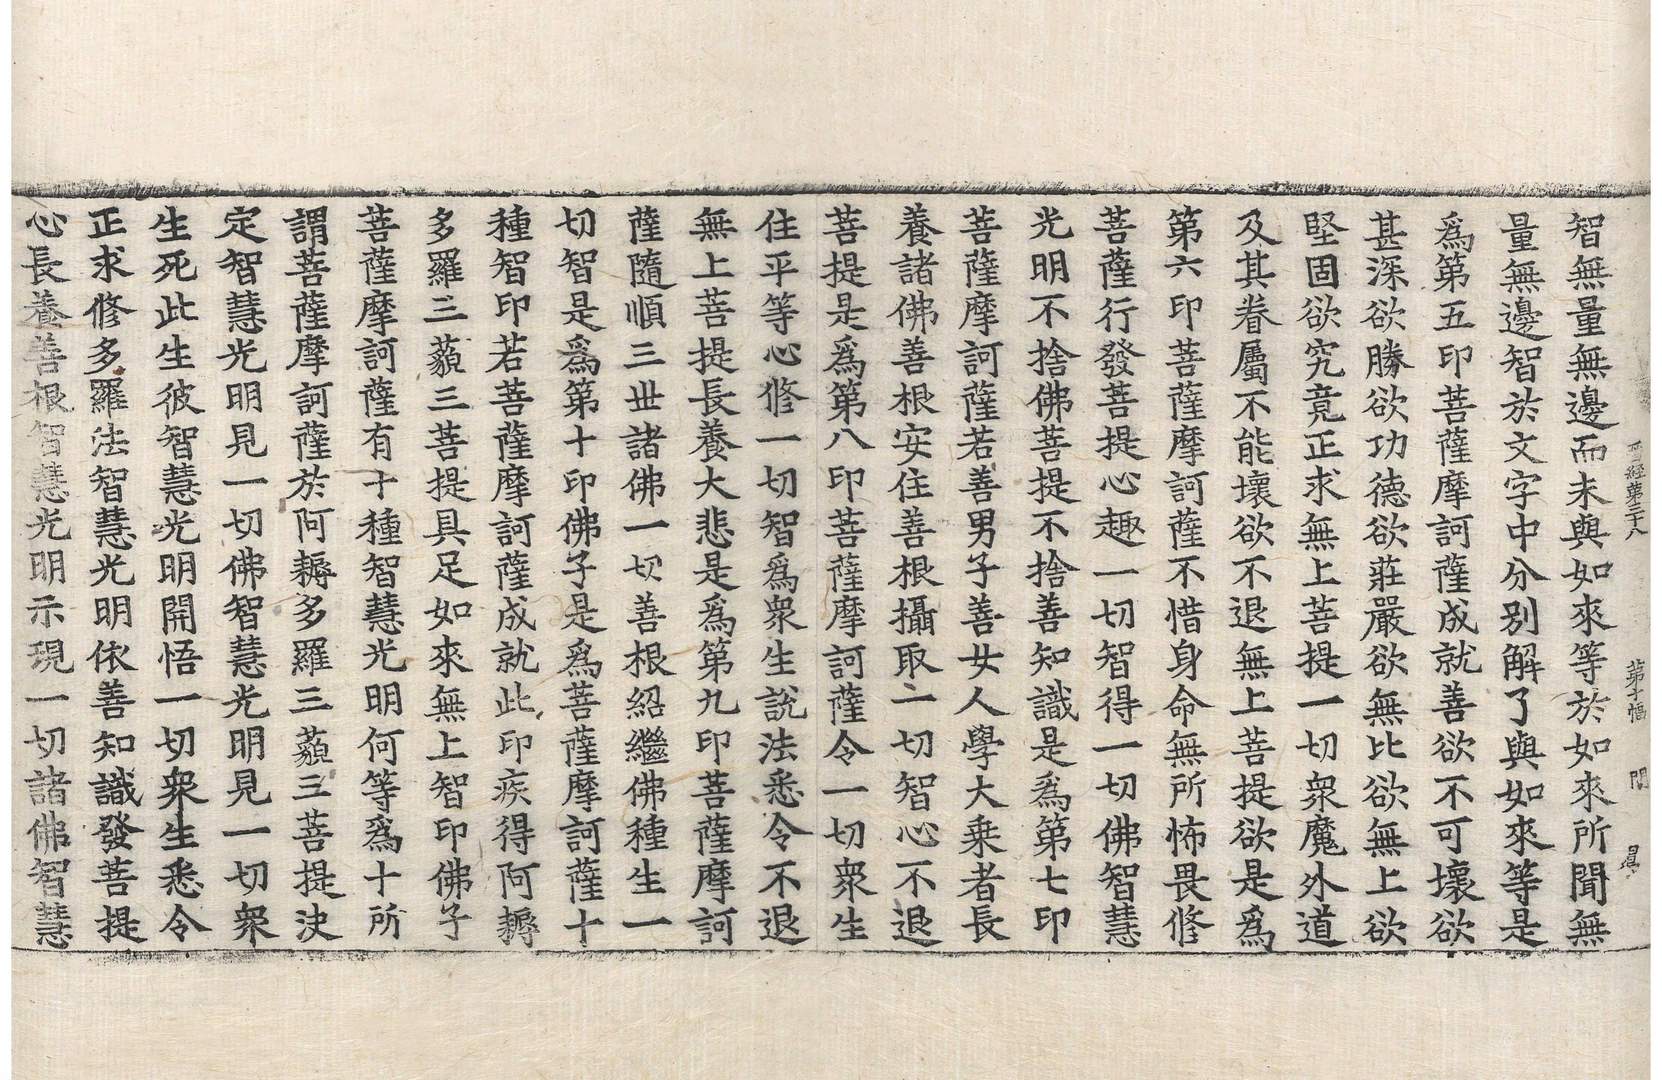 晉經第三十八　第十幅　門　㝵
智無量無邊而未與如來等於如來所聞無
量無邊智於文字中分別解了與如來等是
爲第五印菩薩摩訶薩成就善欲不可壞欲
甚深欲勝欲功德欲莊嚴欲無比欲無上欲
堅固欲究竟正求無上菩提一切衆魔外道
及其眷屬不能壞欲不退無上菩提欲是爲
第六印菩薩摩訶薩不惜身命無所怖畏修
菩薩行發菩提心趣一切智得一切佛智慧
光明不捨佛菩提不捨善知識是爲第七印
菩薩摩訶薩若善男子善女人學大乘者長
養諸佛善根安住善根攝取一切智心不退
菩提是爲第八印菩薩摩訶薩令一切衆生
住平等心修一切智爲衆生說法悉令不退
無上菩提長養大悲是爲第九印菩薩摩訶
薩隨順三世諸佛一切善根紹繼佛種生一
切智是爲第十印佛子是爲菩薩摩訶薩十
種智印若菩薩摩訶薩成就此印疾得阿耨
多羅三藐三菩提具足如來無上智印佛子
菩薩摩訶薩有十種智慧光明何等爲十所
謂菩薩摩訶薩於阿耨多羅三藐三菩提決
定智慧光明見一切佛智慧光明見一切衆
生死此生彼智慧光明開悟一切衆生悉令
正求修多羅法智慧光明依善知識發菩提
心長養善根智慧光明示現一切諸佛智慧